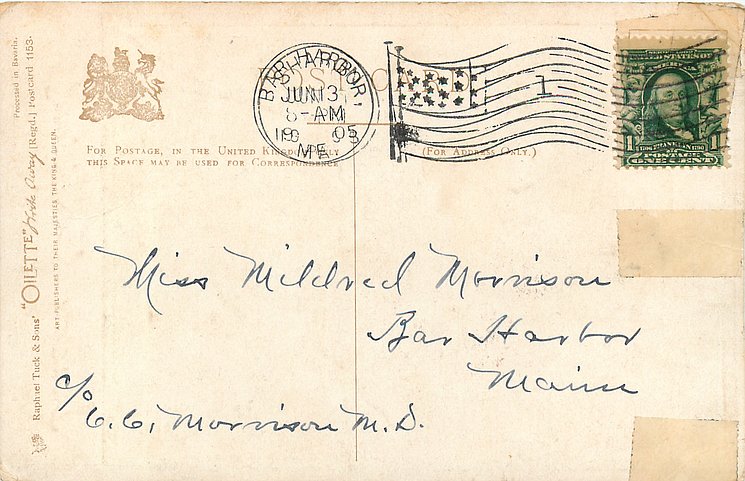 Processed in Bavaria.
Raphael Tuck & Sons' "OILETTE" Wide Away [Regd.] Postcard 1153.
ART PUBLISHERS TO THEIR MAJESTIES THE KING & QUEEN.
FOR POSTAGE, IN THE UNITED KINGDOM ONLY
THIS SPACE MAY BE USED FOR CORRESPONDENCE
(FOR ADDRESS ONLY.)
BAR HARBOR
JUN 13
8-AM
1905
ME.
1
UNITED STATES OF
AMERICA
1706 FRANKLIN 1790
1 POSTAGE
ONE CENT
Miss Mildred Morrison
Bar Harbor
Maine
c/o
C.C. Morrison M.D.